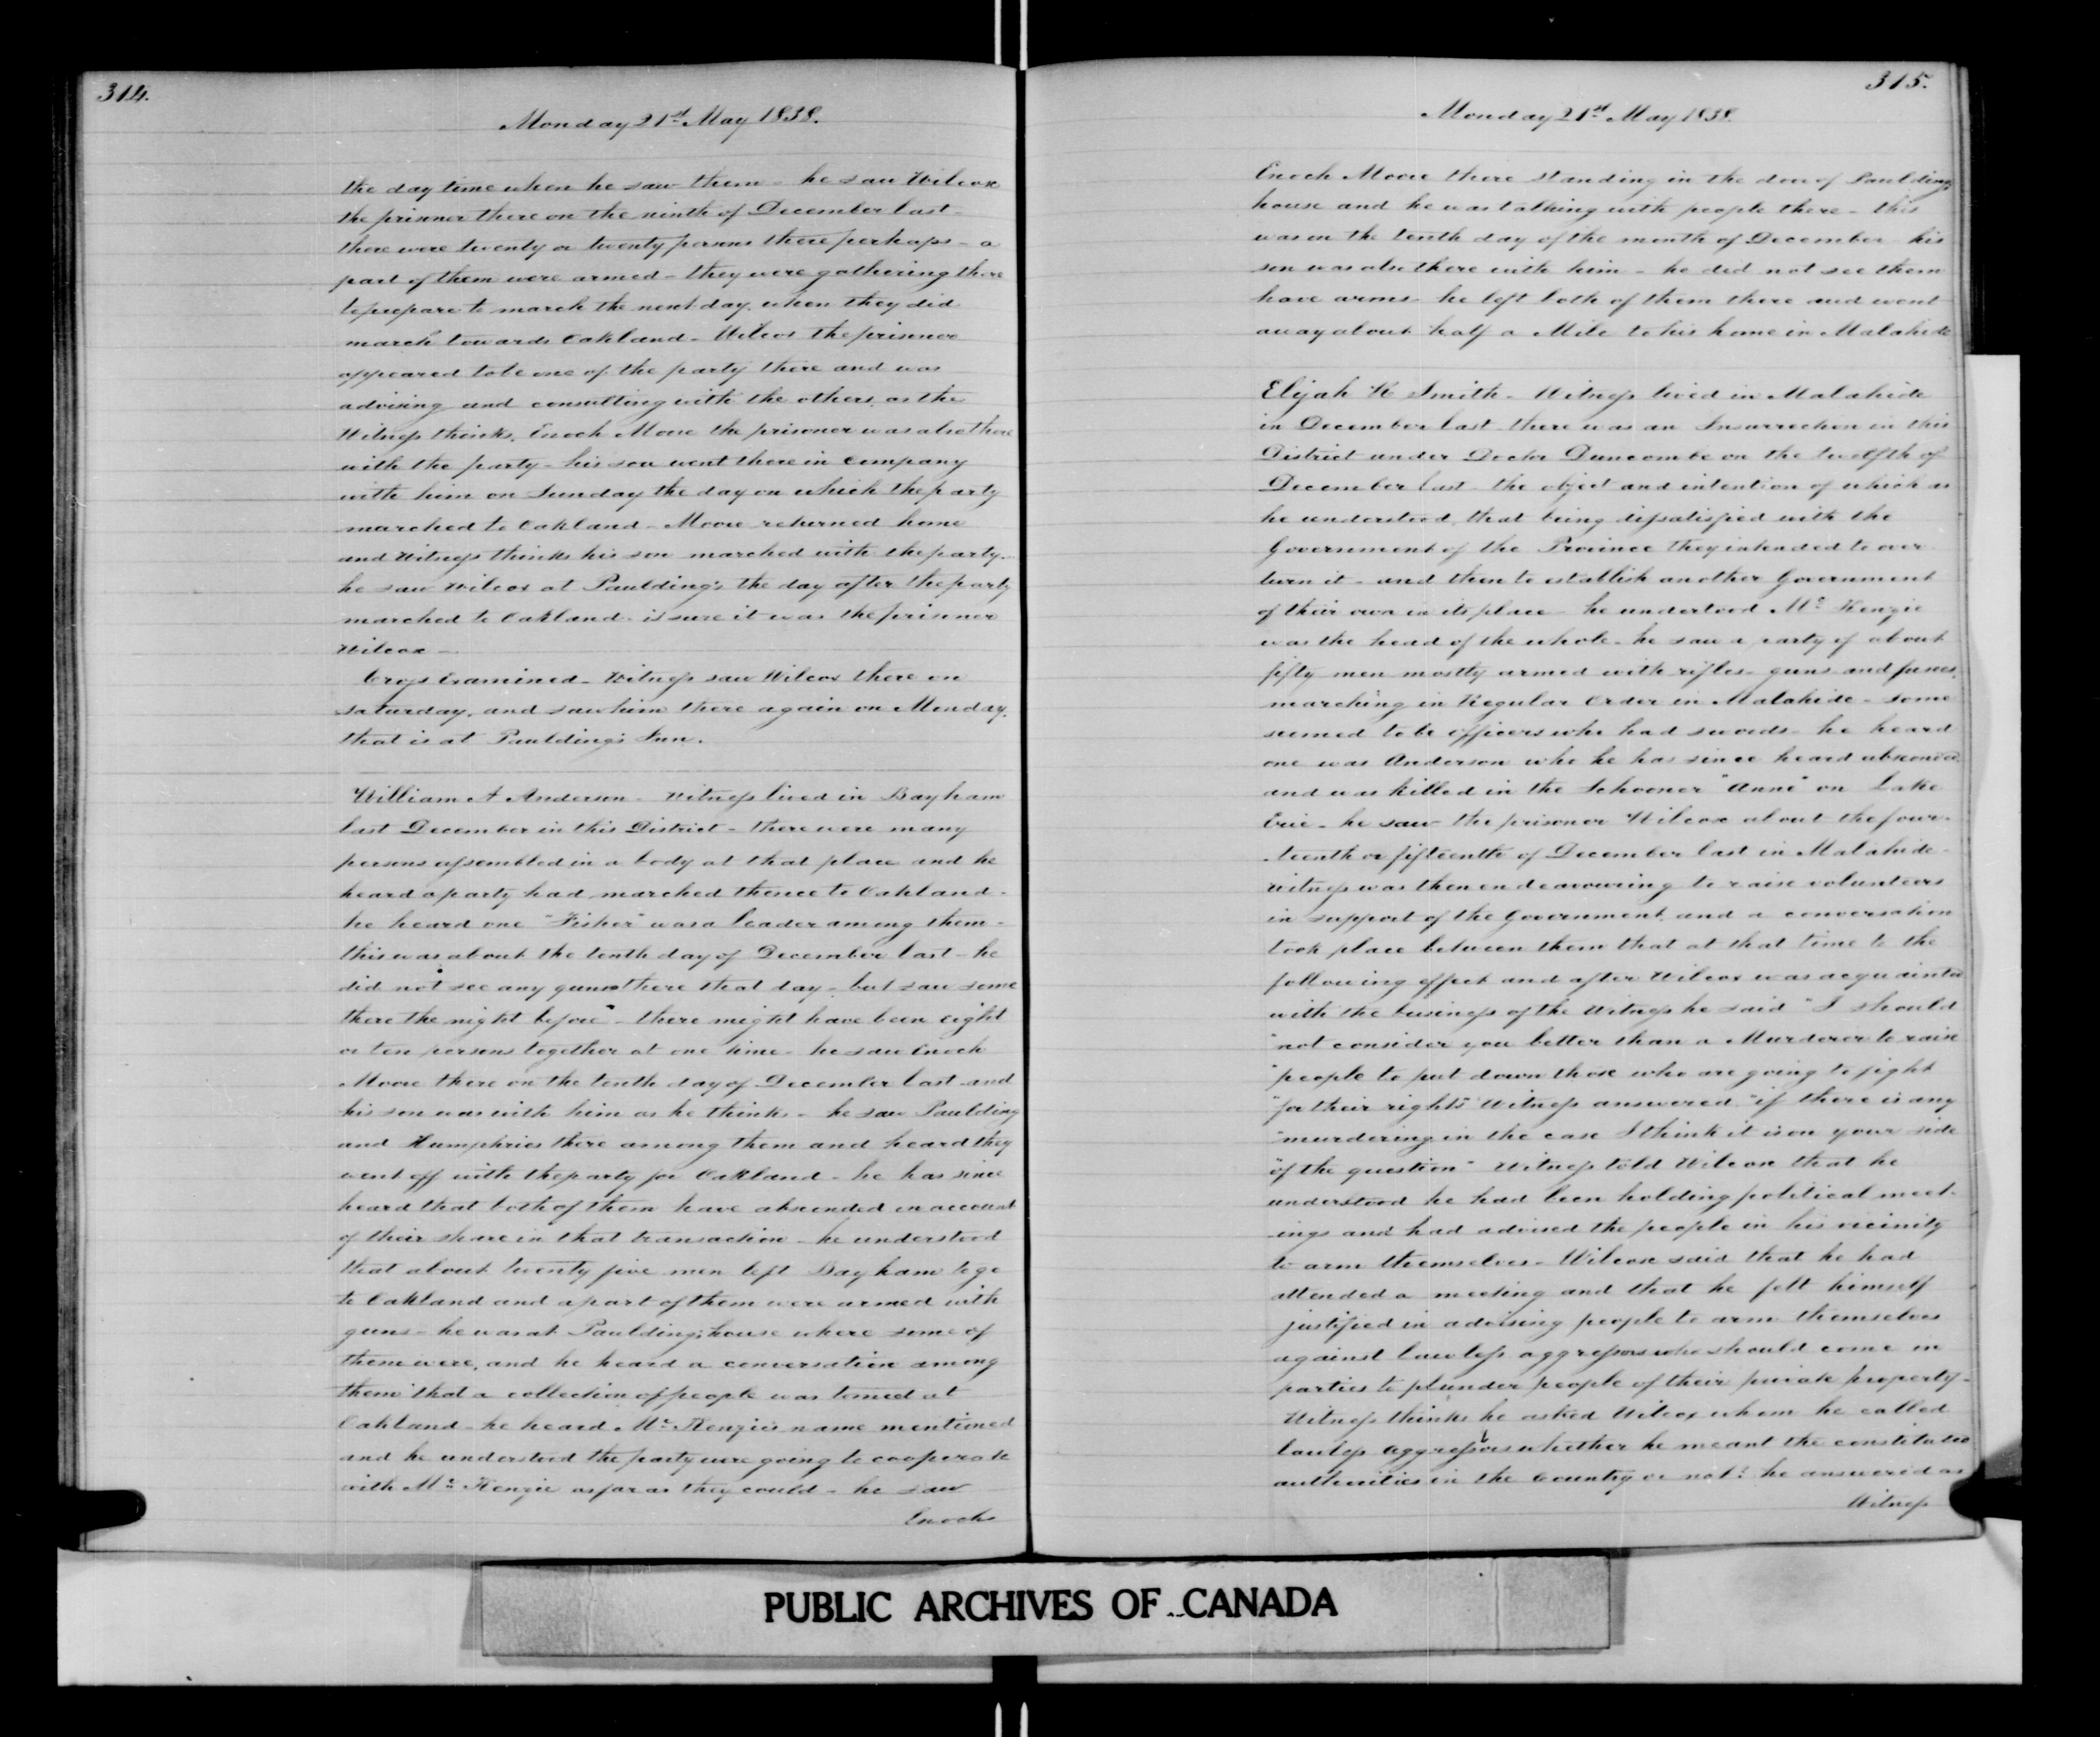 314.
Monday 21st May 1838.
the day time when he saw them - he saw Wilcox
the prisoner there on the ninth of December last -
there were twenty or twenty persons there perhaps - a
part of them were armed - they were gathering there
to prepare to march the next day, when they did
march towards Oakland - Wilcox the prisoner
appeared to be one of the party there and was
advising and consulting with the others, as the
Witness thinks, Enoch Moore the prisoner was also there
with the party - his son went there in Company
with him on Sunday the day on which the party
marched to Oakland - Moore returned home
and Witness thinks his son marched with the party -
he saw Wilcox at Pauldings the day after the party
marched to Oakland - is sure it was the prisoner
Wilcox -
Cross Examined - Witness saw Wilcox there on
Saturday, and saw him there again on Monday,
that is at Paulding's Inn.
William A Anderson - Witness lived in Bayham
last December in this District - there were many
persons assembled in a body at that place and he
heard a party had marched thence to Oakland -
he heard one "Fisher" was a leader among them -
this was about the tenth day of December last - he
did not see any guns there that day - but saw some
there the night before - there might have been eight
or ten persons together at one time - he saw Enoch
Moore there on the tenth day of December last and
his son was with him as he thinks - he saw Paulding
and Humphries there among them and heard they
went off with the party for Oakland - he has since
heard that both of them have absconded on account
of their share in that transaction - he understood
that about twenty five men left Bayham to go
to Oakland and a part of them were armed with
guns - he was at Paulding's house where some of
them were, and he heard a conversation among
them that a collection of people was to meet at
Oakland - he heard Mc Kenzie's name mentioned
and he understood the party were going to cooperate
with Mc Kenzie as far as they could - he saw
Enoch
315.
Monday 21st May 1838.
Enoch Moore there standing in the door of Paulding's
house and he was talking with people there - this
was on the tenth day of the month of December - his
son was also there with him - he did not see them
have arms - he left both of them there and went
away about half a Mile to his home in Malahide
Elijah K Smith - Witness lived in Malahide
in December last - there was an Insurrection in this
District under Doctor Duncombe on the twelfth of
December last - the object and intention of which as
he understood, that being dissatisfied with the
Government of the Province they intended to over
turn it - and then to establish another Government
of their own in its place - he understood Mc Kenzie
was the head of the whole - he saw a party of about
fifty men mostly armed with rifles - guns and
marching in Regular Order in Malahide - some
seemed to be officers who had swords - he heard
one was Anderson who he has since heard absconded
and was killed in the Schooner "Anne" on Lake
Erie - he saw the prisoner Wilcox about the four-
-teenth or fifteenth of December last in Malahide -
Witness was then endeavouring to raise volunteers
in support of the Government, and a conversation
took place between them that at that time to the
following effect and after Wilcox was acquainted
with the business of the Witness he said "I should
"not consider you better than a Murderer to raise
"people to put down those who are going to fight
"for their rights" Witness answered "if there is any
"murdering in the case I think it is on your side
"of the question" Witness told Wilcox that he
understood he had been holding political meet-
-ings and had advised the people in his vicinity
to arm themselves - Wilcox said that he had
attended a meeting and that he felt himself
justified in advising people to arm themselves
against lawless aggressors who should come in
parties to plunder people of their private property -
Witness thinks he asked Wilcox whom he called
lawless aggressors whether he meant the constituted
authorities in the Country or not? he answered as
Witness
PUBLIC ARCHIVES OF CANADA